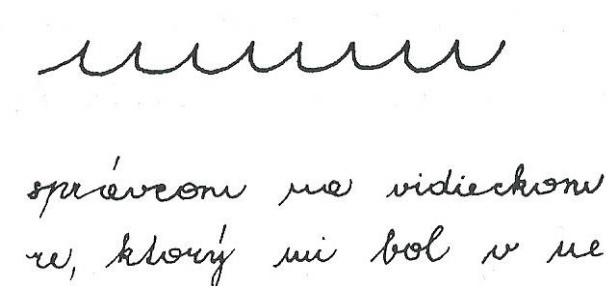 správcom na vidieckom
re, ktorý mi bol v ne